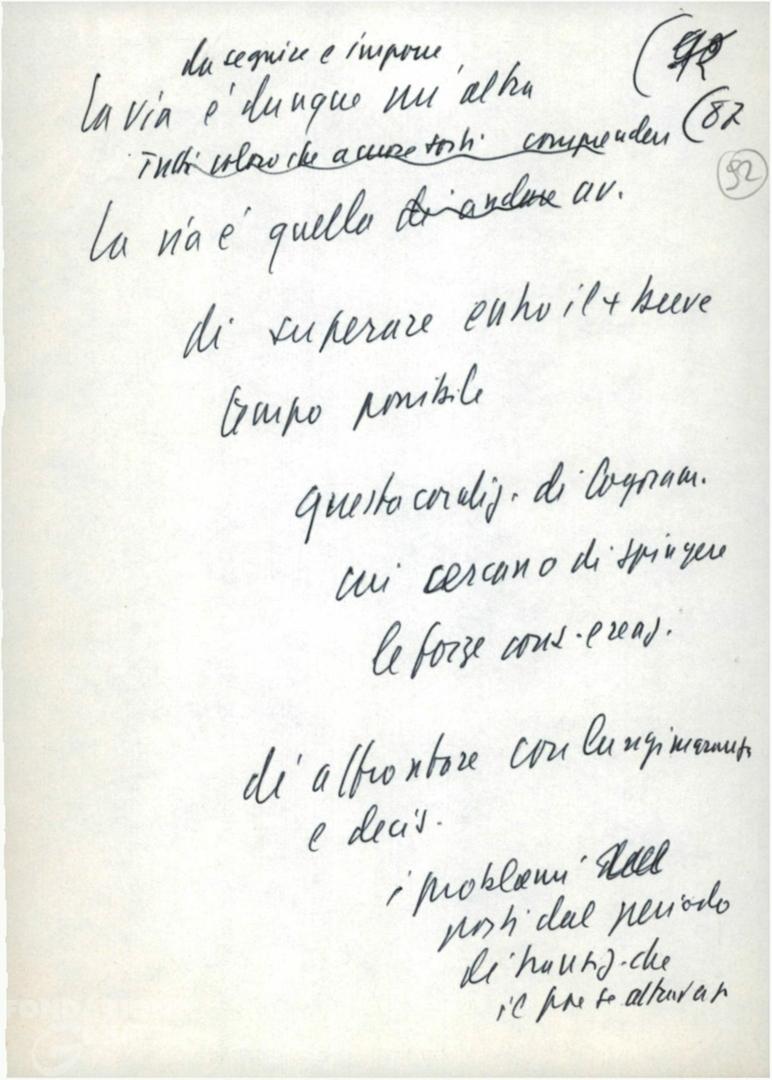 da seguire e impone
(92
La via è dunque un'altra
(87
Tutti coloro che a cuore sorti comprendere
92
La via è quella di andare av.
di superare entro il + breve
tempo possibile
questa di Cogoram.
cui cercano di spingere
le forze cons. e reaz.
di affrontare con lungimiranza
e decis.
i problemi
posti dal periodo
di transiz. che
il paese attravers
FONDAZIONE